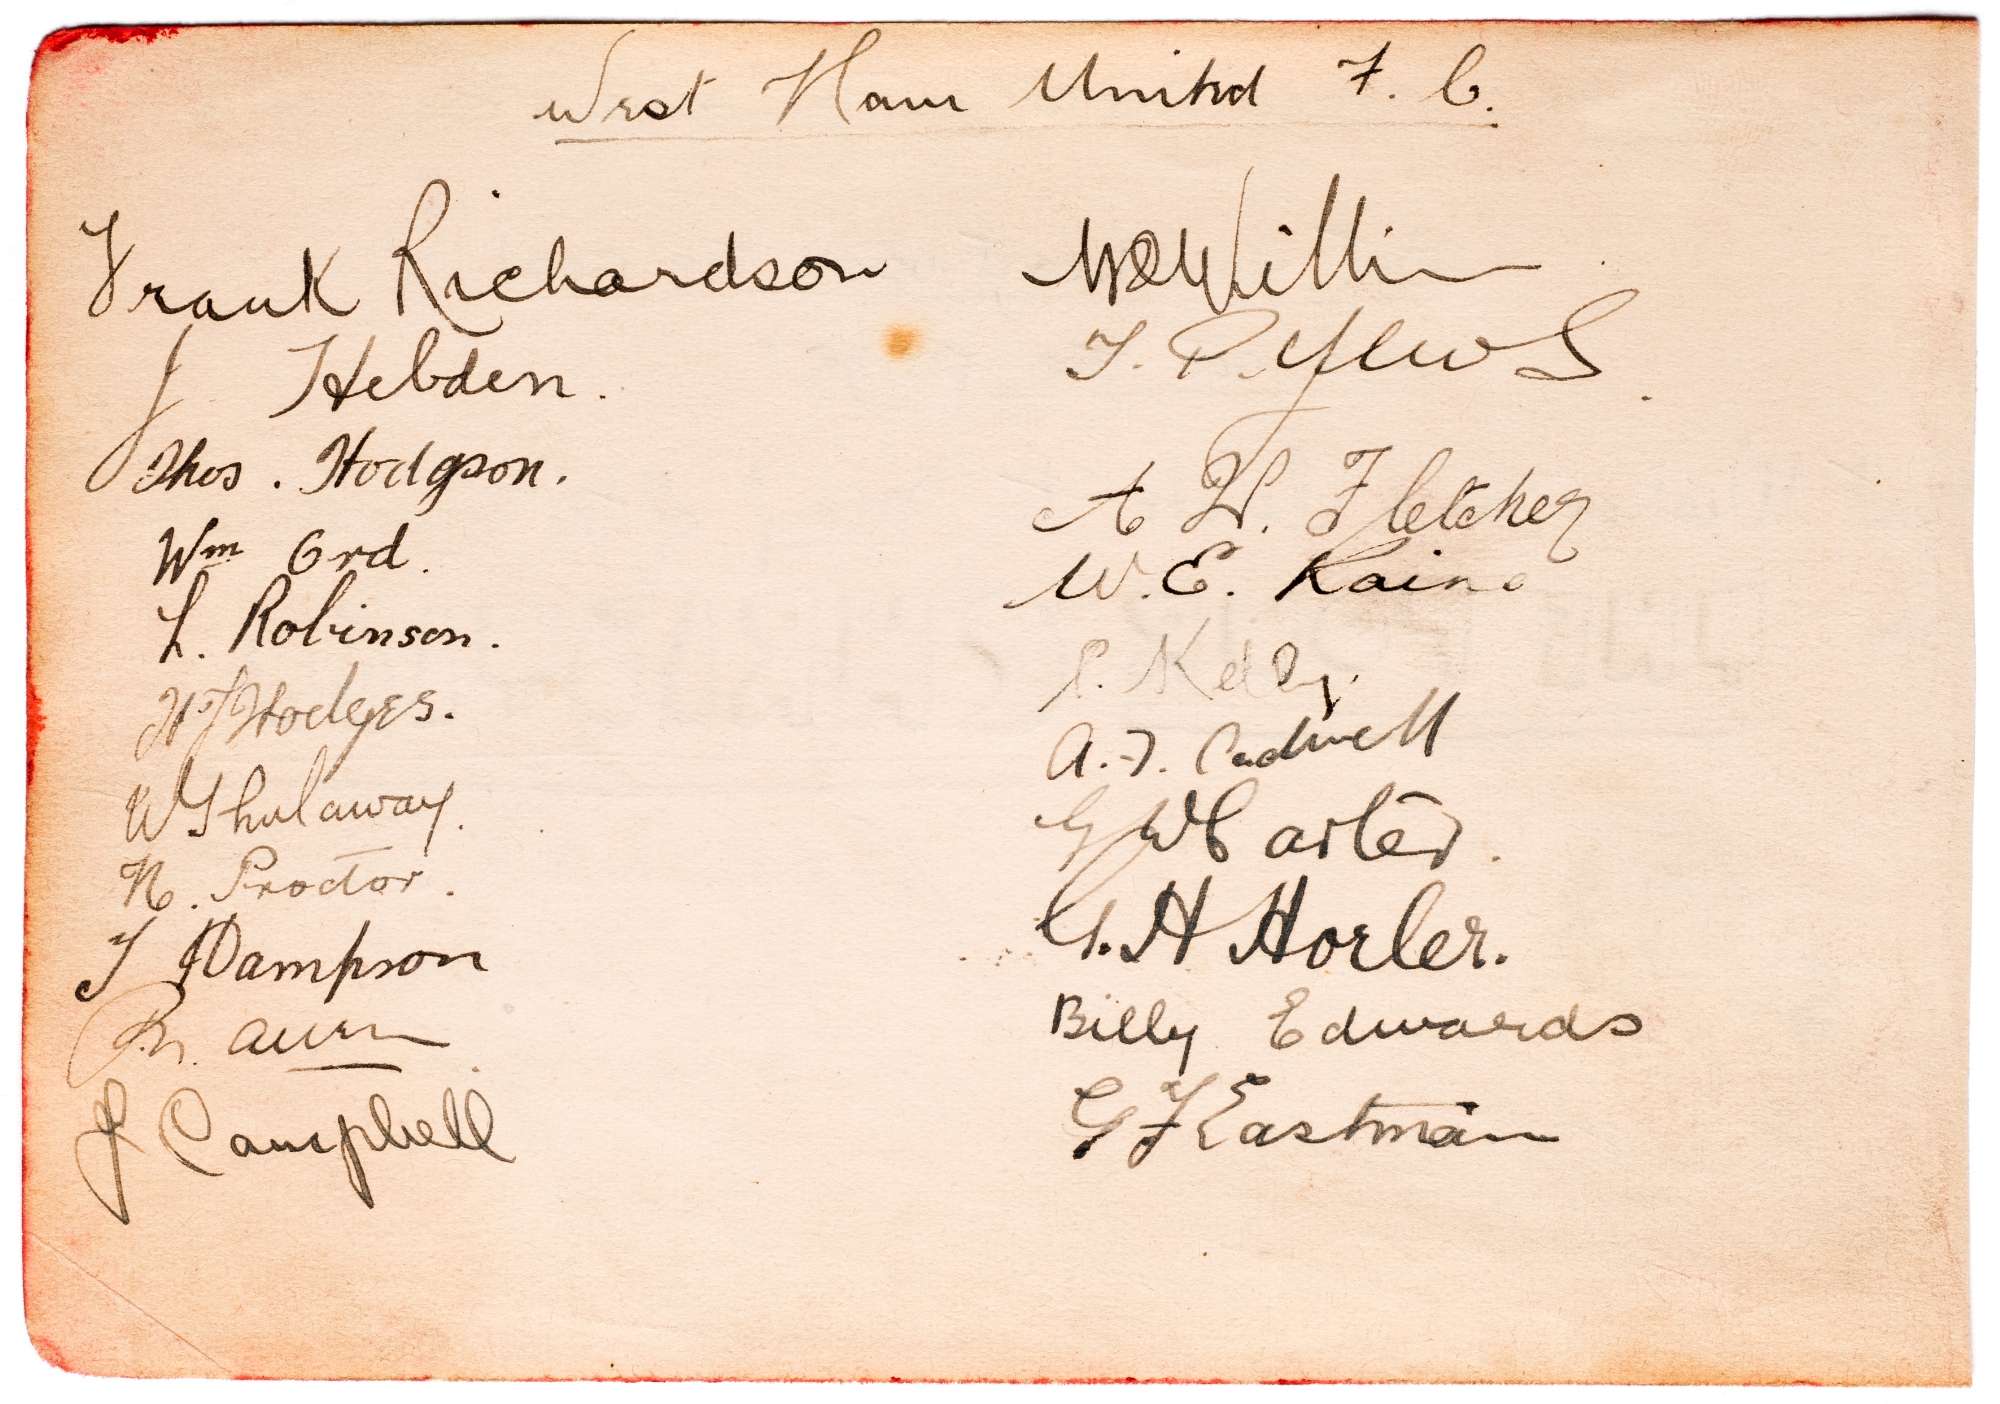 West Ham United F. C.
Frank Richardson
J Hebden.
Thos. Hodgson.
Wm Ord.
L. Robinson.
H J Hodges.
W Thulaway.
N. Proctor.
T Hampson
J Campbell
W Willi
T. P. Yews
A W. Fletcher
W. E. Kaine
P. Kelly.
A. F. Cadwell
G W Carter.
G. H Horler.
Billy Edwards
G F Eastman